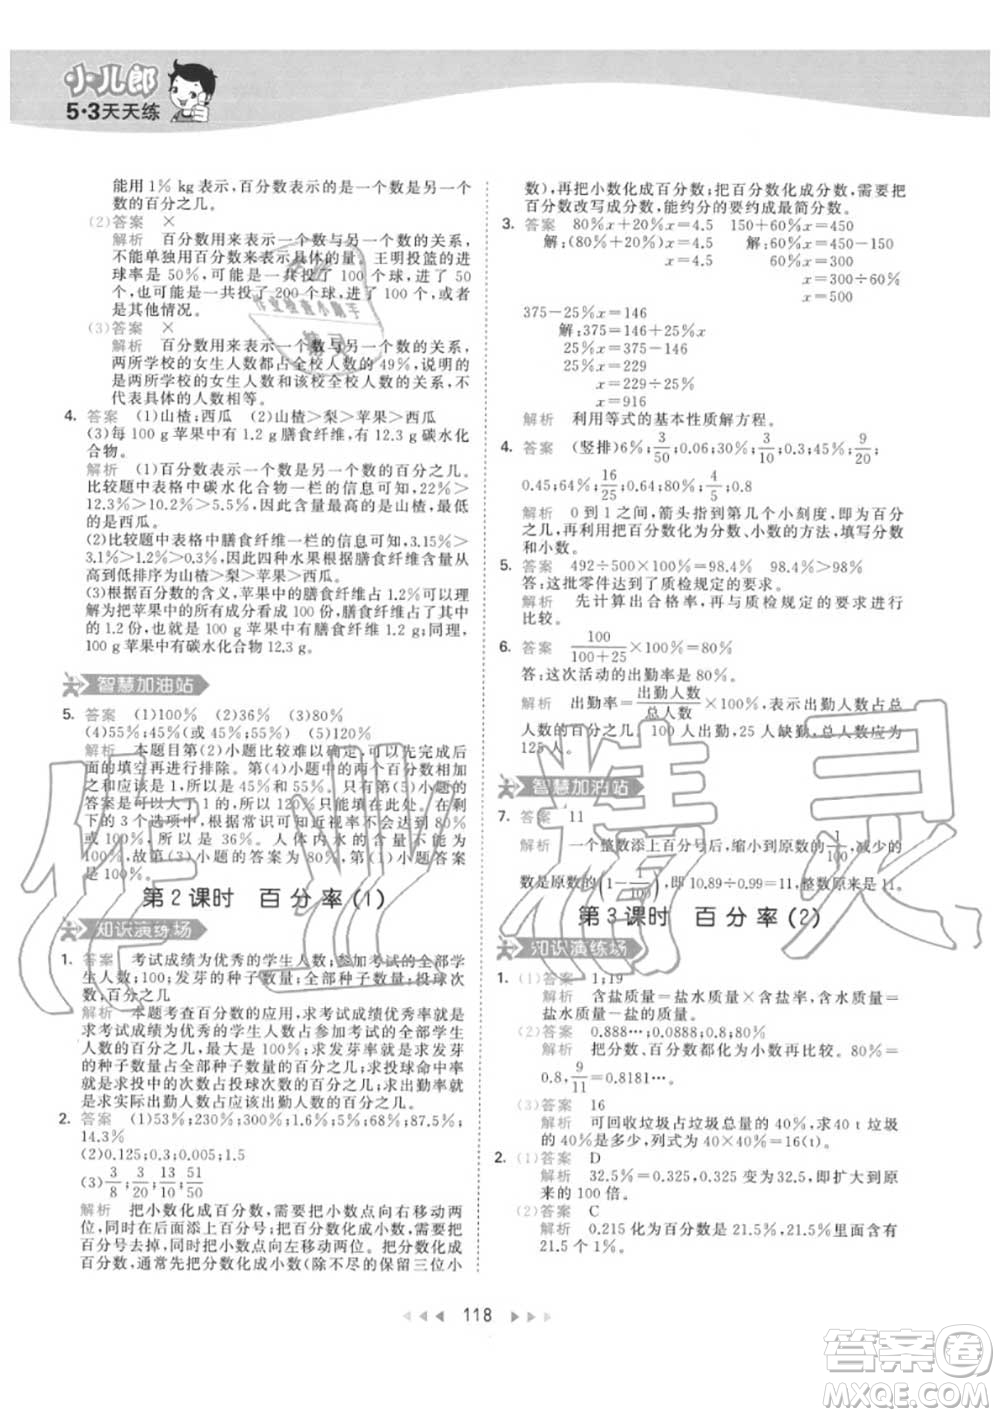 小儿郎
5·3天天练
能用 1% kg 表示，百分数表示的是一个数是另一个数的百分之几。
(2)答案 ×
解析 百分数用来表示一个数与另一个数的关系，不能单独用百分数来表示具体的量。王明投篮的进球率是 50%，可能是一共投了 100 个球，进了 50 个球，也可能是一共投了 200 个球，进了 100 个球，或者是其他情况。
(3)答案 ×
解析 百分数用来表示一个数与另一个数的关系，两所学校的女生人数都占全校人数的 49%，说明的是两所学校的女生人数和该校全校人数的关系，并不代表两所学校的女生人数相等。
4. 答案 (1)山楂;西瓜 (2)山楂>梨>苹果>西瓜
(3)每 100 g 苹果中有 1.2 g 膳食纤维，有 12.3 g 碳水化合物。
解析 (1)百分数表示一个数是另一个数的百分之几。比较题中表格中碳水化合物一栏的信息可知，22%>12.3%>10.2%>5.5%，因此含量最高的是山楂，最低的为西瓜。
(2)比较题中表格中膳食纤维一栏的信息可知，3.1%>1.2%>0.3%，因此四种水果根据膳食纤维含量从高到低排序为山楂>梨>苹果>西瓜。
(3)根据百分数的含义，从苹果的膳食纤维含量可以理解为苹果中的所有成分看成 100 份，膳食纤维占其中的 1.2 份，也就是 100 g 苹果中有膳食纤维 1.2 g;同理，100 g 苹果中有碳水化合物 12.3 g。
智慧加油站
5. 答案 (1)100% (2)36% (3)80%
(4)55%;45%(或 45%;55%)
解析 本题目第(2)小题比较难以确定，可以先完成后面的填空再进行排除。第(4)小题中的两个百分数的和应该是 1，所以是 45%和 55%。第(1)小题的答案是可以大于 1 的，所以 100%填在此处。在剩下的 3 个选项中，根据常识可知近视率不可能大于 50%，所以是 36%。人体内水的含量不可能是 100%，故第(3)小题的答案为 80%。
第 2 课时 百 分 率 (1)
知识演练场
1. 答案 考试成绩为优秀的学生人数;参加考试的全部学生人数;100;发芽的种子数量;全部种子数量;投球次数，百分之几
解析 本题考查百分数的应用，求考试成绩优秀率就是求考试成绩为优秀的学生人数占参加考试的全部学生人数的百分之几，最大是 100%;求发芽率就是求发芽的种子数量占全部种子数量的百分之几;求投球命中率就是求投中的次数占投球次数的百分之几;求出勤率就是求实际出勤人数占应该出勤人数的百分之几。
2. 答案 (1)53%;5%;230%;300%;1.6%;5%;68%;87.5%;14.3%
(2)0.125;0.3;0.005;1.5
(3)3/8;3/20;13/20;4/5
解析 把小数化成百分数，把小数点向右移动两位，位数不够时，添 0 补足，再在后面添上百分号;把百分数化成小数，把百分号去掉，同时小数点向左移动两位。把分数化成百分数，通常先把分数化成小数(除不尽的保留三位小
数)，再把小数化成百分数;把百分数化成分数，先把百分数改写成分数，能约分的要约成最简分数。
3. 答案 80%x+20%x=4.5 150+60%x=450
解:(80%+20%)x=4.5 解:60%x=450-150
x=4.5 60%x=300
x=300÷60%
x=500
375-25%x=146
解:25%x=375-146
25%x=229
x=229÷25%
x=916
解析 利用等式的基本性质解方程。
4. 答案 (竖排)6%;3/50;0.06;30%;3/10;0.3;45%;9/20;0.45;64%;16/25;0.64;80%;4/5;0.8
解析 0 到 1 中，箭头指到第几个小刻度，即表示百分之几，再利用把百分数化为分数、小数的方法，填写分数和小数。
5. 答案 492÷500×100%=98.4% 98.4%>98%
答:这批零件达到了质检规定的要求。
解析 先计算出合格率，再与质检规定的要求进行比较。
6. 答案 100/(100+25)×100%=80%
答:这次活动的出勤率是 80%。
解析 出勤率=出勤人数/总人数×100%，出勤人数占总人数的 80%。100 人出勤，25 人缺勤，总人数应为 125 人。
智慧加油站
7. 答案 11
解析 一个整数添上百分号后，缩小到原数的1/100，减少的数是原数的(1-1/100)，即 10.89÷0.99=11，整数原来是 11。
第 3 课时 百 分 率 (2)
知识演练场
1. (1)答案 1;19
解析 含盐质量=盐水质量×含盐率，含水质量=盐水质量-含盐质量。
(2)答案 0.888…;0.0888;0.8;80%
解析 把分数、百分数都化为小数再比较。80%=0.8，9/11=0.8181…。
(3)答案 16
解析 可回收垃圾占垃圾总量的 40%，求 40 t 垃圾的 40%是多少，列式为 40×40%=16(t)。
2. (1)答案 D
解析 32.5%=0.325，0.325 变为 32.5，即扩大到原来的 100 倍。
(2)答案 C
解析 0.215 化为百分数是 21.5%，21.5%里面有 21.5 个 1%。
118
作业精灵
作业检查小助手
精灵
答案圈
MXQE.COM